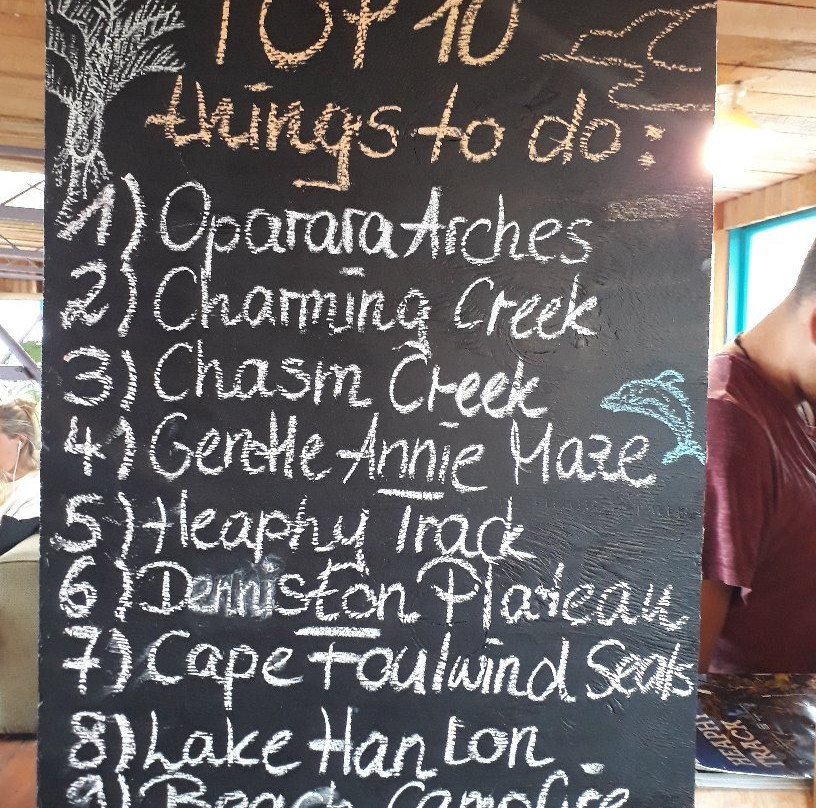 TOP 10
things to do:
1) Oparara Arches
2) Charming Creek
3) Chasm Creek
4) Gentle Annie Maze
5) Heaphy Track
6) Denniston Plateau
7) Cape Foulwind Seals
8) Lake Hanlon
9) Beach Campfire
HEAPHY
TRACK